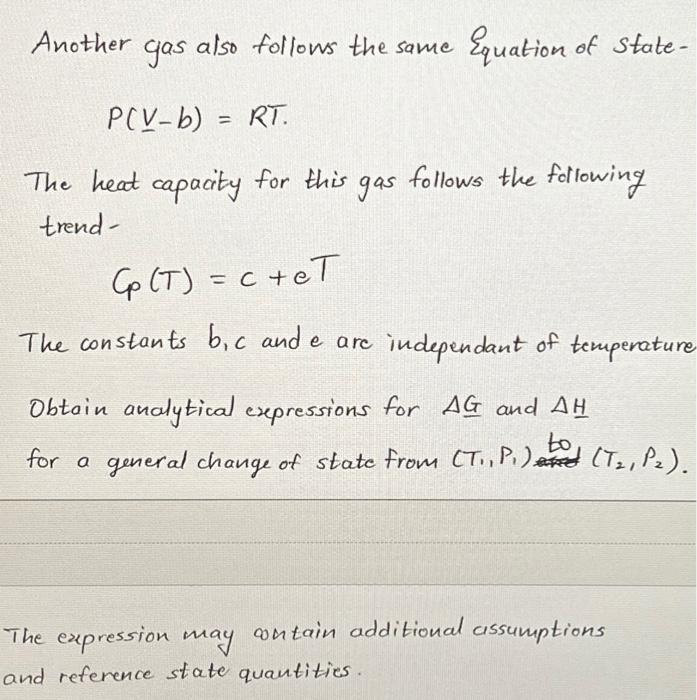 Another gas also follows the same Equation of State-
P(V̲-b) = RT.
The heat capacity for this gas follows the following
trend-
Cp(T) = c + eT
The constants b, c and e are independant of temperature
Obtain analytical expressions for ΔG̲ and ΔH̲
for a general change of state from (T₁, P₁) to (T₂, P₂).
The expression may contain additional assumptions
and reference state quantities.